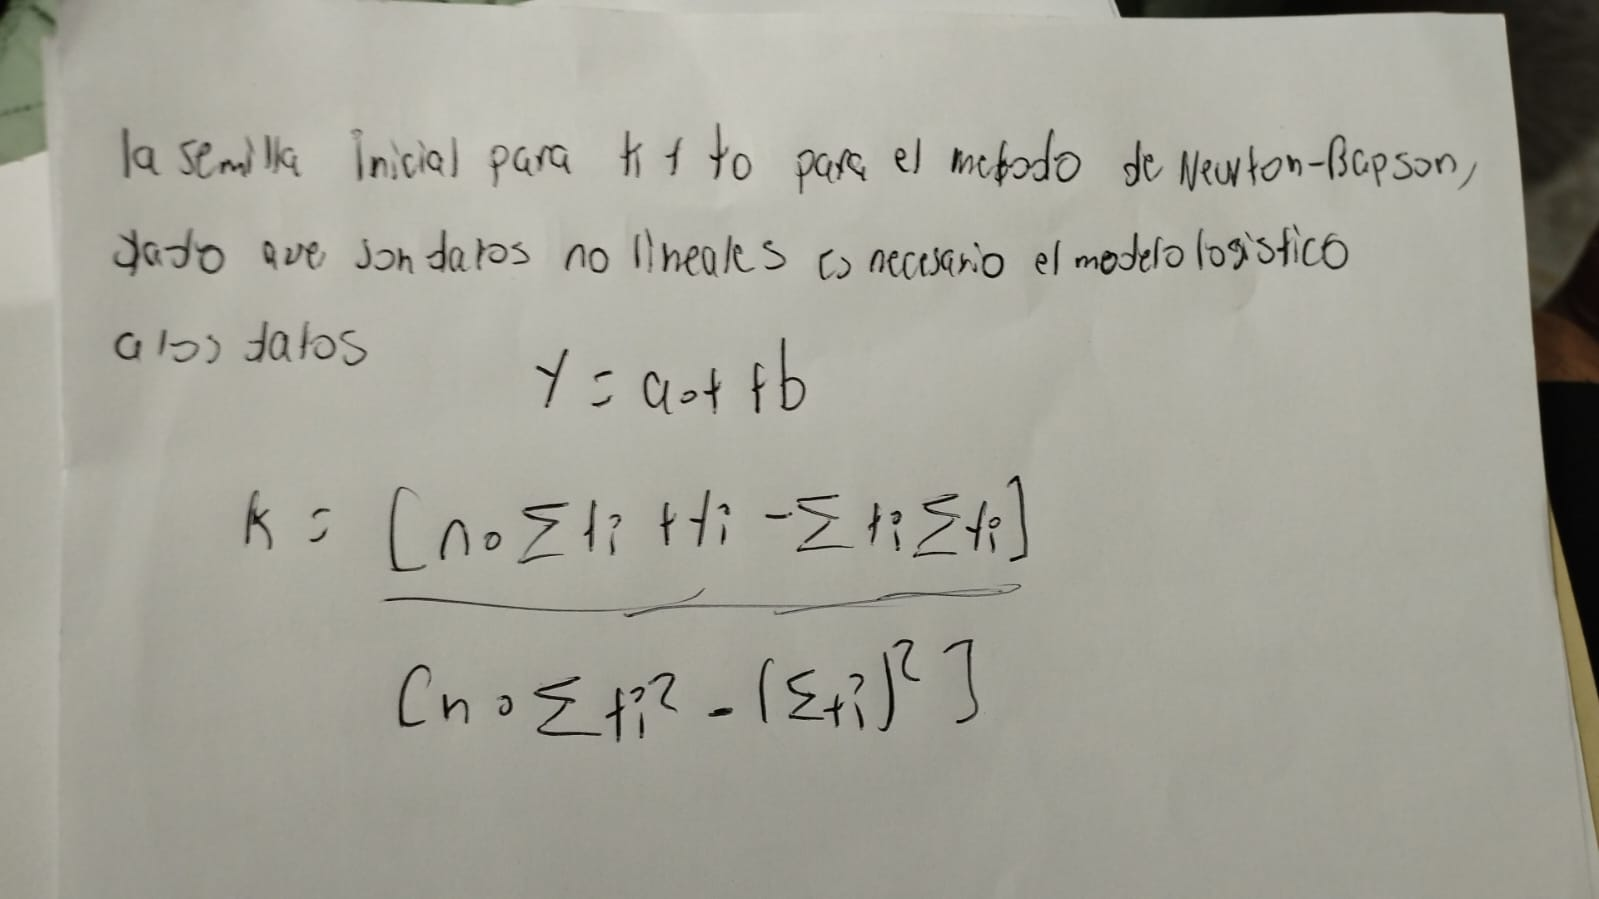 la semilla inicial para k y to para el metodo de Newton-Rapson,
dado que son datos no lineales es necesario el modelo logistico
a los datos
Y = a∘t + b
k = [n∘Σti + ti - Σti Σti]
[n∘Σti² - (Σti)²]